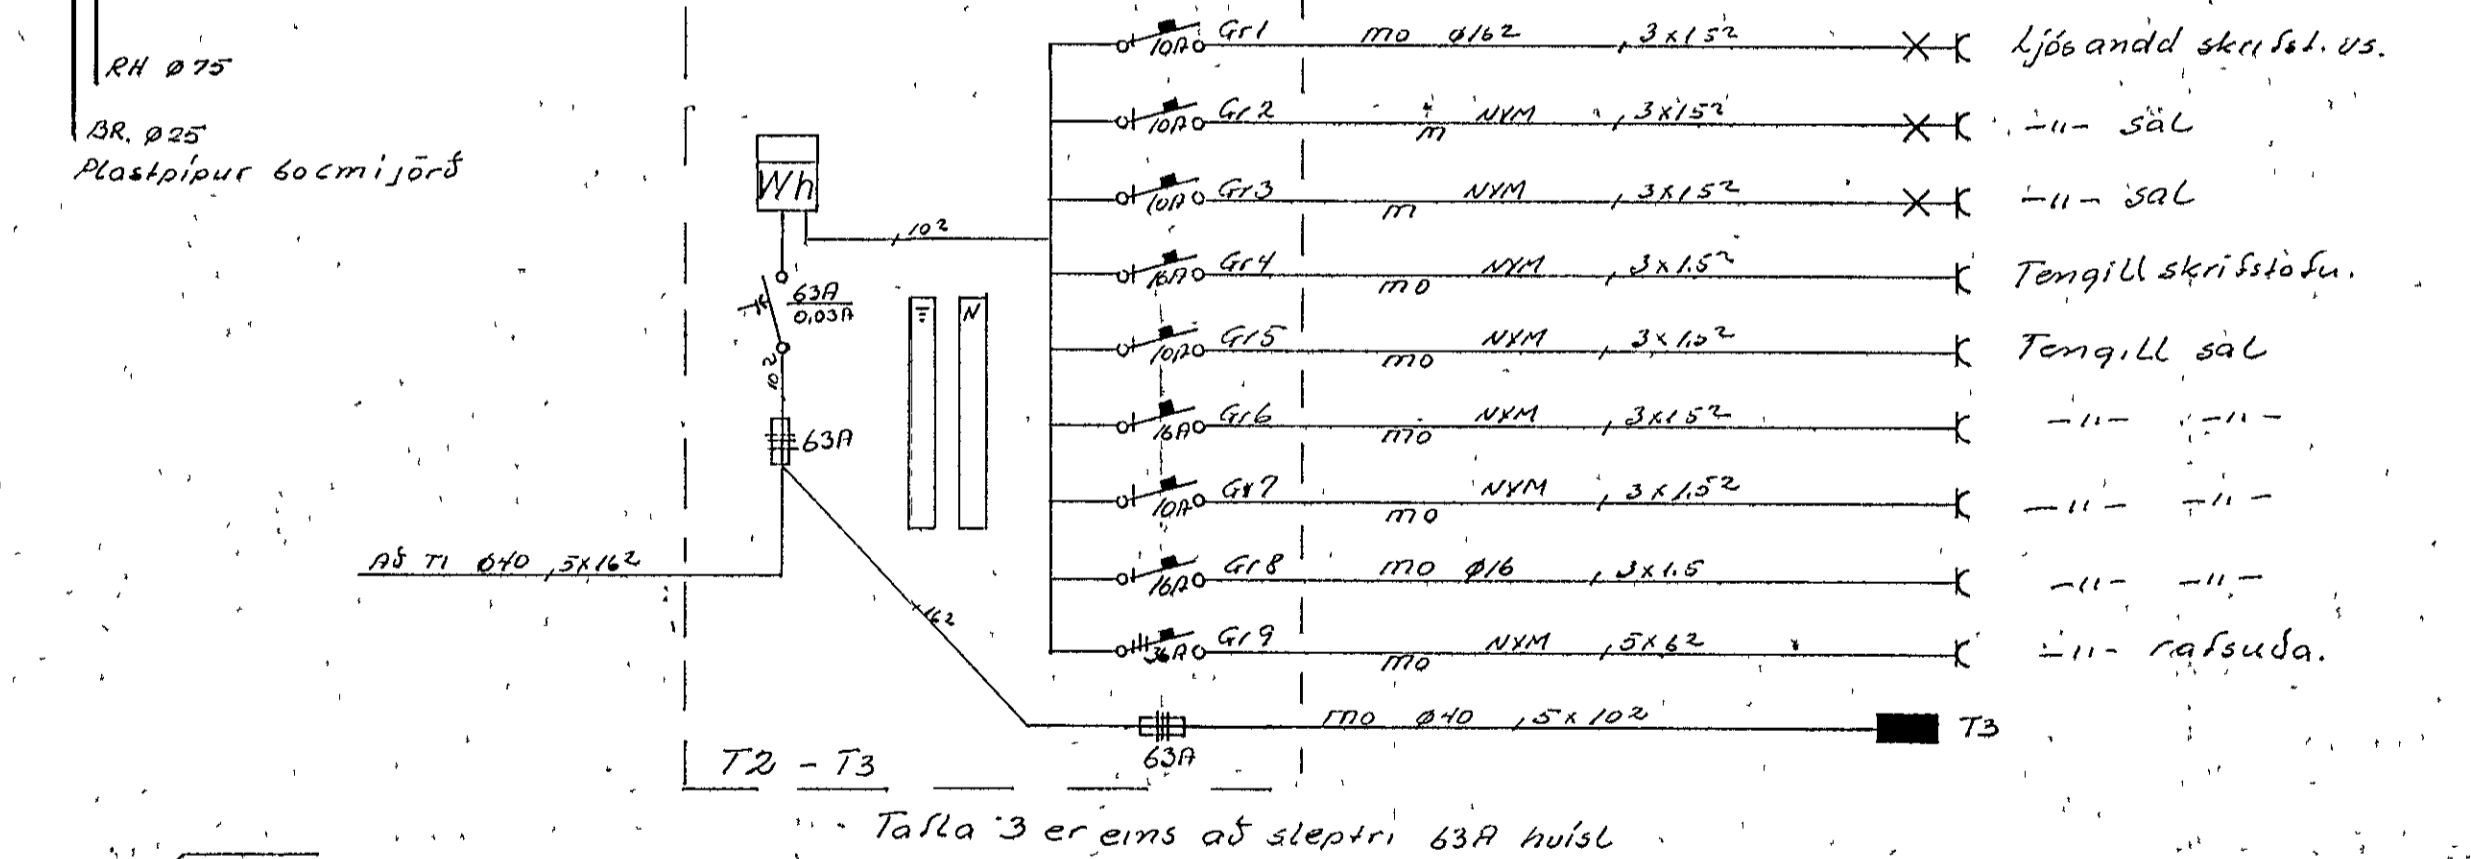 RH ø75
BR. ø25
Plastpípur 60cm í jörð
Wh
10²
63A
0,03A
10²
63A
N
Að T1 ø40 5x16²
16²
10A Gr1 mo ø16² 3x1.5² Ljós and d skrifst. vs.
10A Gr2 m NYM 3x1.5² -"- sal
10A Gr3 m NYM 3x1.5² -"- sal
16A Gr4 mo NYM 3x1.5² Tengill skrifstofu.
10A Gr5 mo NYM 3x1.5² Tengill sal
16A Gr6 mo NYM 3x1.5² -"- -"-
10A Gr7 mo NYM 3x1.5² -"- -"-
16A Gr8 mo ø16 3x1.5 -"- -"-
Gr9 mo NYM 5x6² -"- rafsuða.
63A mo ø40 5x10² T3
T2 - T3
Tafla 3 er eins að sleptri 63A kvísl